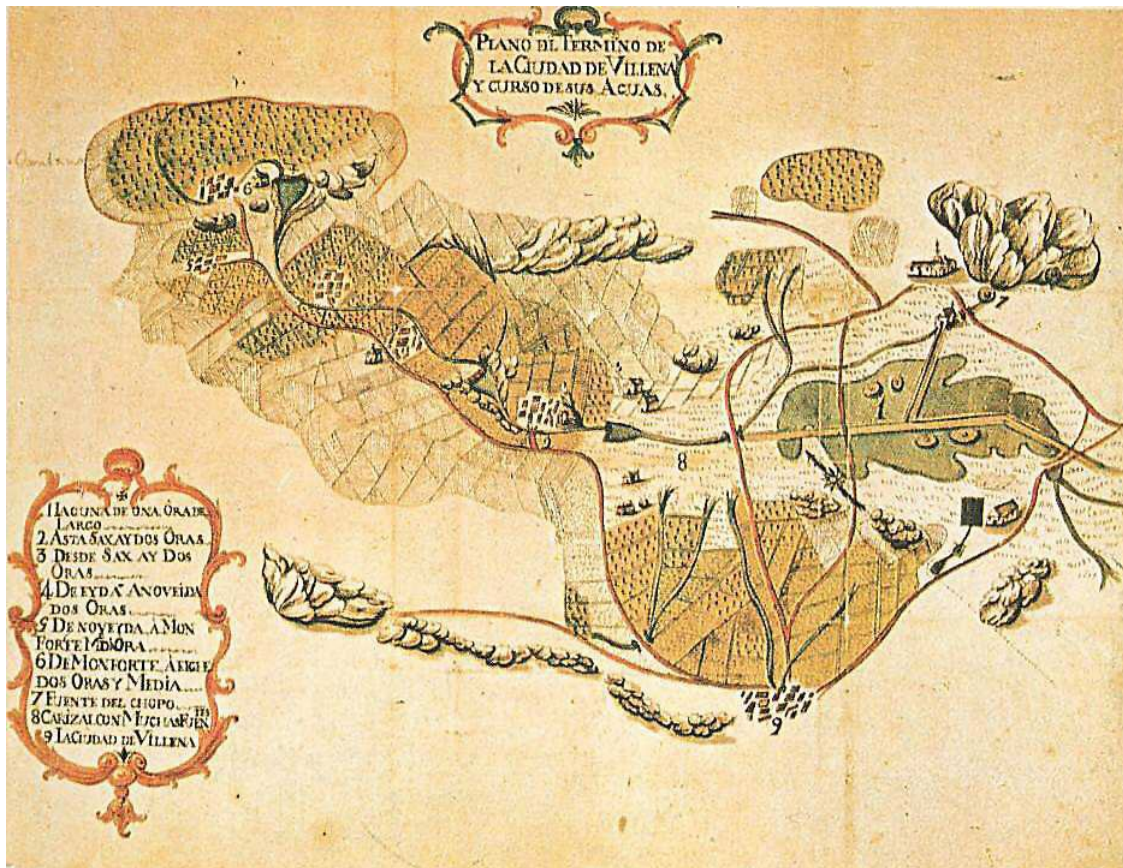 PLANO DEL TERMINO DE
LA CIUDAD DE VILLENA
Y CURSO DE SUS AGUAS.
6
7
1
8
9
1 LAGUNA DE UNA ORA DE
LARGO
2 ASTA SAX AY DOS ORAS
3 DESDE SAX AY DOS
ORAS
4 DE EYDA A NOVEIDA
DOS ORAS
5 DE NOVEYDA A MON
FORTE MEDIORA
6 DE MONFORTE A ELCHE
DOS ORAS Y MEDIA
7 FUENTE DEL CHOPO
8 CARIZAL CON MUCHAS FUENTES
9 LA CIUDAD DE VILLENA